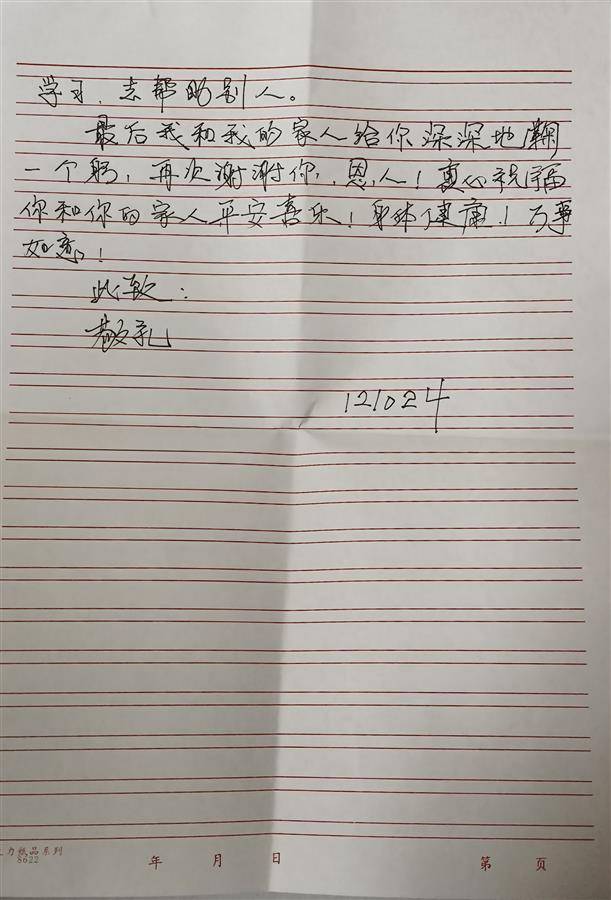 学习，去帮助别人。
最后我和我的家人给你深深地鞠
一个躬，再次谢谢你，恩人！真心祝福
你和你的家人平安喜乐！身体健康！万事
如意！
此致：
敬礼
121024
力纸品系列
8622
年 月 日
第 页